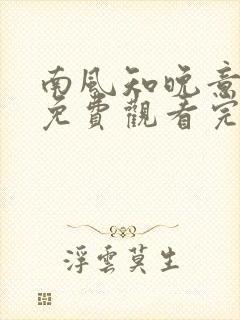 南風知晚意
免費觀看完
浮雲莫生